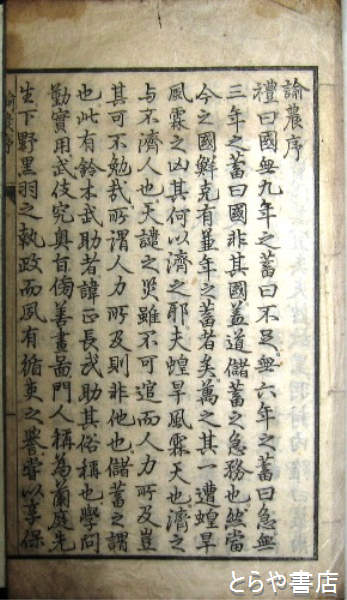 諭農序
禮曰國無九年之蓄曰不足無六年之蓄曰急無
三年之蓄曰國非其國蓋道儲蓄之急務也然當
今之國鮮克有並年之蓄者矣萬之其一遭蝗旱
風霖之凶其何以濟之耶夫蝗旱風霖天也濟之
与不濟人也天譴之災雖不可逭而人力所及豈
其可不勉哉所謂人力所及則非他也儲蓄之謂
也此有鈴木武助者諱正長武助其俗稱也學問
勤實用武伎究奥自偹善畫啚門人稱為蘭庭先
生下野黒羽之執政而夙有循吏之譽嘗以享保
諭農序
とらや書店